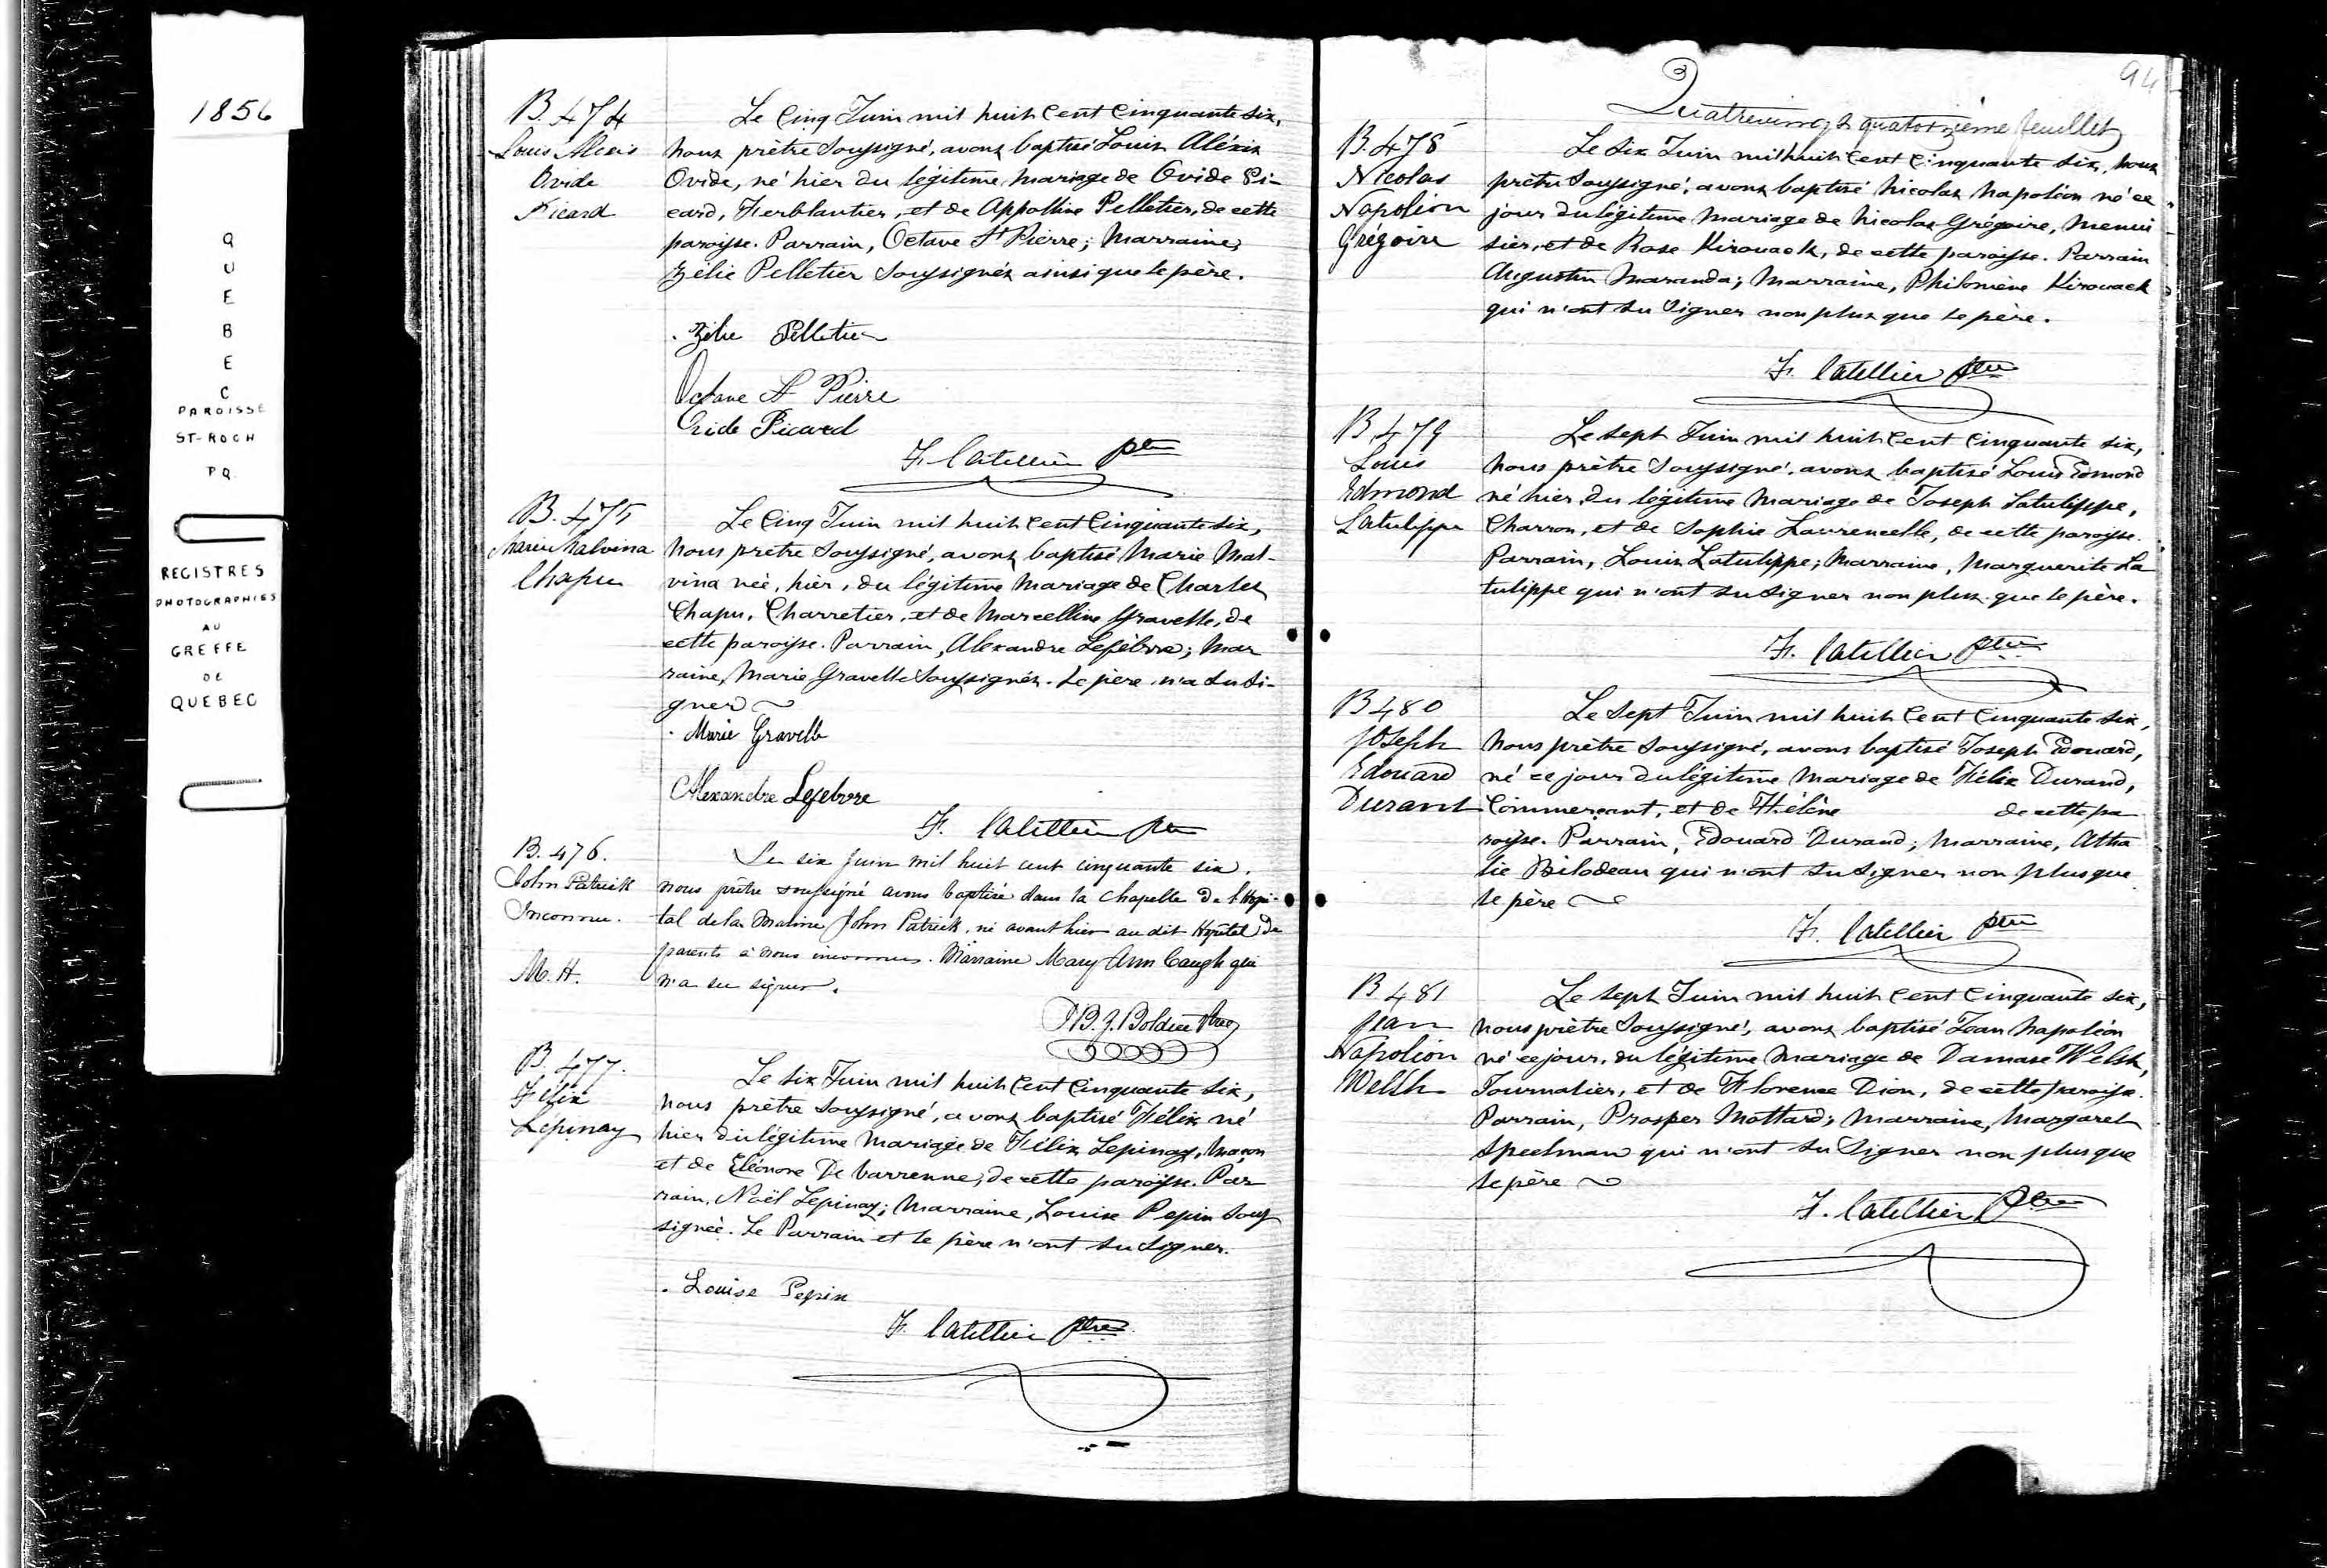 1856
QUEBEC
PAROISSE
ST-ROCH
PQ
REGISTRES
PHOTOGRAPHIES
AU
GREFFE
DE
QUEBEC
B. 474
Louis Alexis
Ovide
Picard
Le Cinq Juin mil huit Cent Cinquante six,
Nous prêtre Soussigné, avons baptisé Louis Aléxis
Ovide, né hier du légitime mariage de Ovide Pi-
card, Ferblantier, et de Appolline Pelletier, de cette
paroisse. Parrain, Octave St Pierre; Marraine,
Zélie Pelletier Soussignés ainsi que le père.
Zélie Pelletier
Octave St Pierre
Ovide Picard
F. Catellier Ptre
B. 475
Marie Malvina
Chapu
Le Cinq Juin mil huit Cent Cinquante six,
Nous prêtre Soussigné, avons baptisé Marie Mal-
vina née, hier, du légitime Mariage de Charles
Chapu, Charretier, et de Marcelline Gravelle, de
cette paroisse. Parrain, Alexandre Lefebvre; Mar
raine, Marie Gravelle Soussignés. Le père n'a su Si-
gner
Marie Gravelle
Alexandre Lefebvre
F. Catellier Ptre
B. 476.
John Patrick
Inconnu.
M. H.
Le six juin mil huit cent cinquante six,
nous prêtre soussigné avons baptisé dans la chapelle de l'Hopi-
tal de la Marine John Patrick, né avant hier au dit Hopital de
parents à nous inconnus. Marraine Mary Ann Caugh qui
n'a su signer.
Boldue Ptre
B. 477.
Félix
Lépinay
Le six Juin mil huit Cent Cinquante six,
nous prêtre Soussigné, avons baptisé Félix né
hier du légitime Mariage de Félix Lepinay, Maçon
et de Eléonore De Varrenne, de cette paroisse. Par
rain, Noël Lepinay; Marraine, Louise Pepin Sous
signée. Le Parrain et le père n'ont su Signer.
Louise Pepin
F. Catellier Ptre
94
Quatrevingt quatorzième feuillet
B. 478
Nicolas
Napoléon
Grégoire
Le Six Juin mil huit Cent Cinquante six, nous
prêtre Soussigné, avons baptisé Nicolas Napoléon né ce
jour du légitime Mariage de Nicolas Grégoire, Menui
sier, et de Rose Kirouack, de cette paroisse. Parrain
Augustin Maranda; Marraine, Philomène Kirouack
qui n'ont su Signer non plus que le père.
F. Catellier Ptre
B 479
Louis
Edmond
Latulippe
Le sept Juin mil huit Cent Cinquante six,
Nous prêtre Soussigné, avons baptisé Louis Edmond
né hier du légitime Mariage de Joseph Latulippe,
Charron, et de Sophie Laurencelle, de cette paroisse.
Parrain, Louis Latulippe; Marraine, Marguerite La
tulippe qui n'ont su Signer non plus que le père.
F. Catellier Ptre
B 480
Joseph
Edouard
Durand
Le Sept Juin mil huit Cent Cinquante six,
Nous prêtre Soussigné, avons baptisé Joseph Edouard,
né ce jour du légitime Mariage de Félix Durand,
Commerçant, et de Hélène de cette pa
roisse. Parrain, Edouard Durand; Marraine, Atha
lie Bilodeau qui n'ont su Signer non plus que
le père
F. Catellier Ptre
B 481
Jean
Napoléon
Welsh
Le Sept Juin mil huit Cent Cinquante six,
nous prêtre Soussigné, avons baptisé Jean Napoléon
né ce jour, du légitime Mariage de Damase Welsh,
Journalier, et de Florence Dion, de cette paroisse.
Parrain, Prosper Mottard; Marraine, Margaret
Speelman qui n'ont su Signer non plus que
le père
F. Catellier Ptre